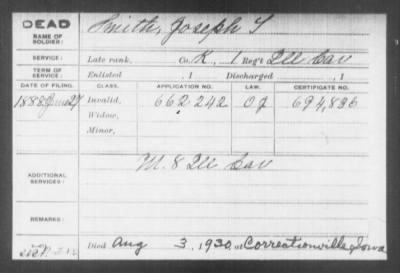 DEAD
NAME OF SOLDIER:
Smith, Joseph S
SERVICE:
Late rank, Co. K., 1 Reg't Ill Cav
TERM OF SERVICE:
Enlisted , 1 Discharged , 1
DATE OF FILING. CLASS. APPLICATION NO. LAW. CERTIFICATE NO.
1888 June 27 Invalid, 662 242 O J 694,836
Widow,
Minor,
ADDITIONAL SERVICES:
M. 8 Ill Cav
REMARKS:
Died Aug 3, 1930, at Correctionville, Iowa